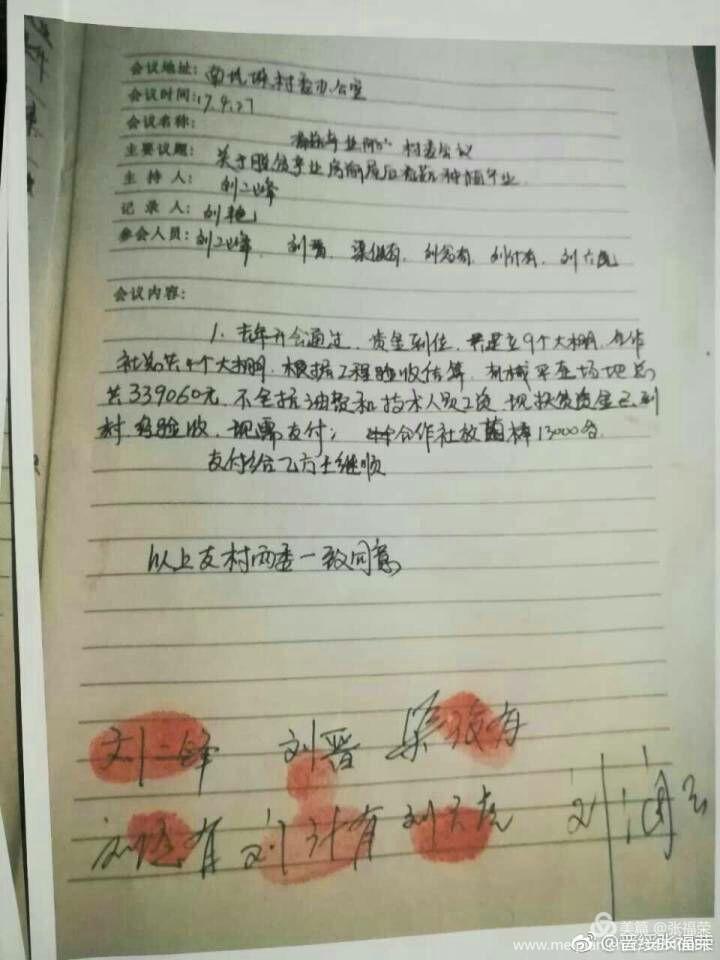 会议地址: 南 村委办公室
会议时间: 17.9.27
会议名称: 村委会议
主要议题: 关于 产业房前屋后 种植产业
主持人: 刘二峰
记录人: 刘艳
参会人员: 刘二峰、 刘晋、 梁 有、 刘 有、 刘计有、 刘
会议内容:
1. 去年开会通过, 资金到位, 共建立9个大棚, 合作
社总共4个大棚, 根据工程验收估算, 机械平整场地总
共339060元, 不包括油费和技术人员工资, 现扶贫资金已到
村, 经验收, 现需支付; 合作社放菌棒13000
支付给乙方 继顺
以上支村两委一致同意
刘二峰 刘晋 梁 有
刘 有 刘计有 刘 刘润
美篇 @张福荣
www.meipian
@晋绥张福荣